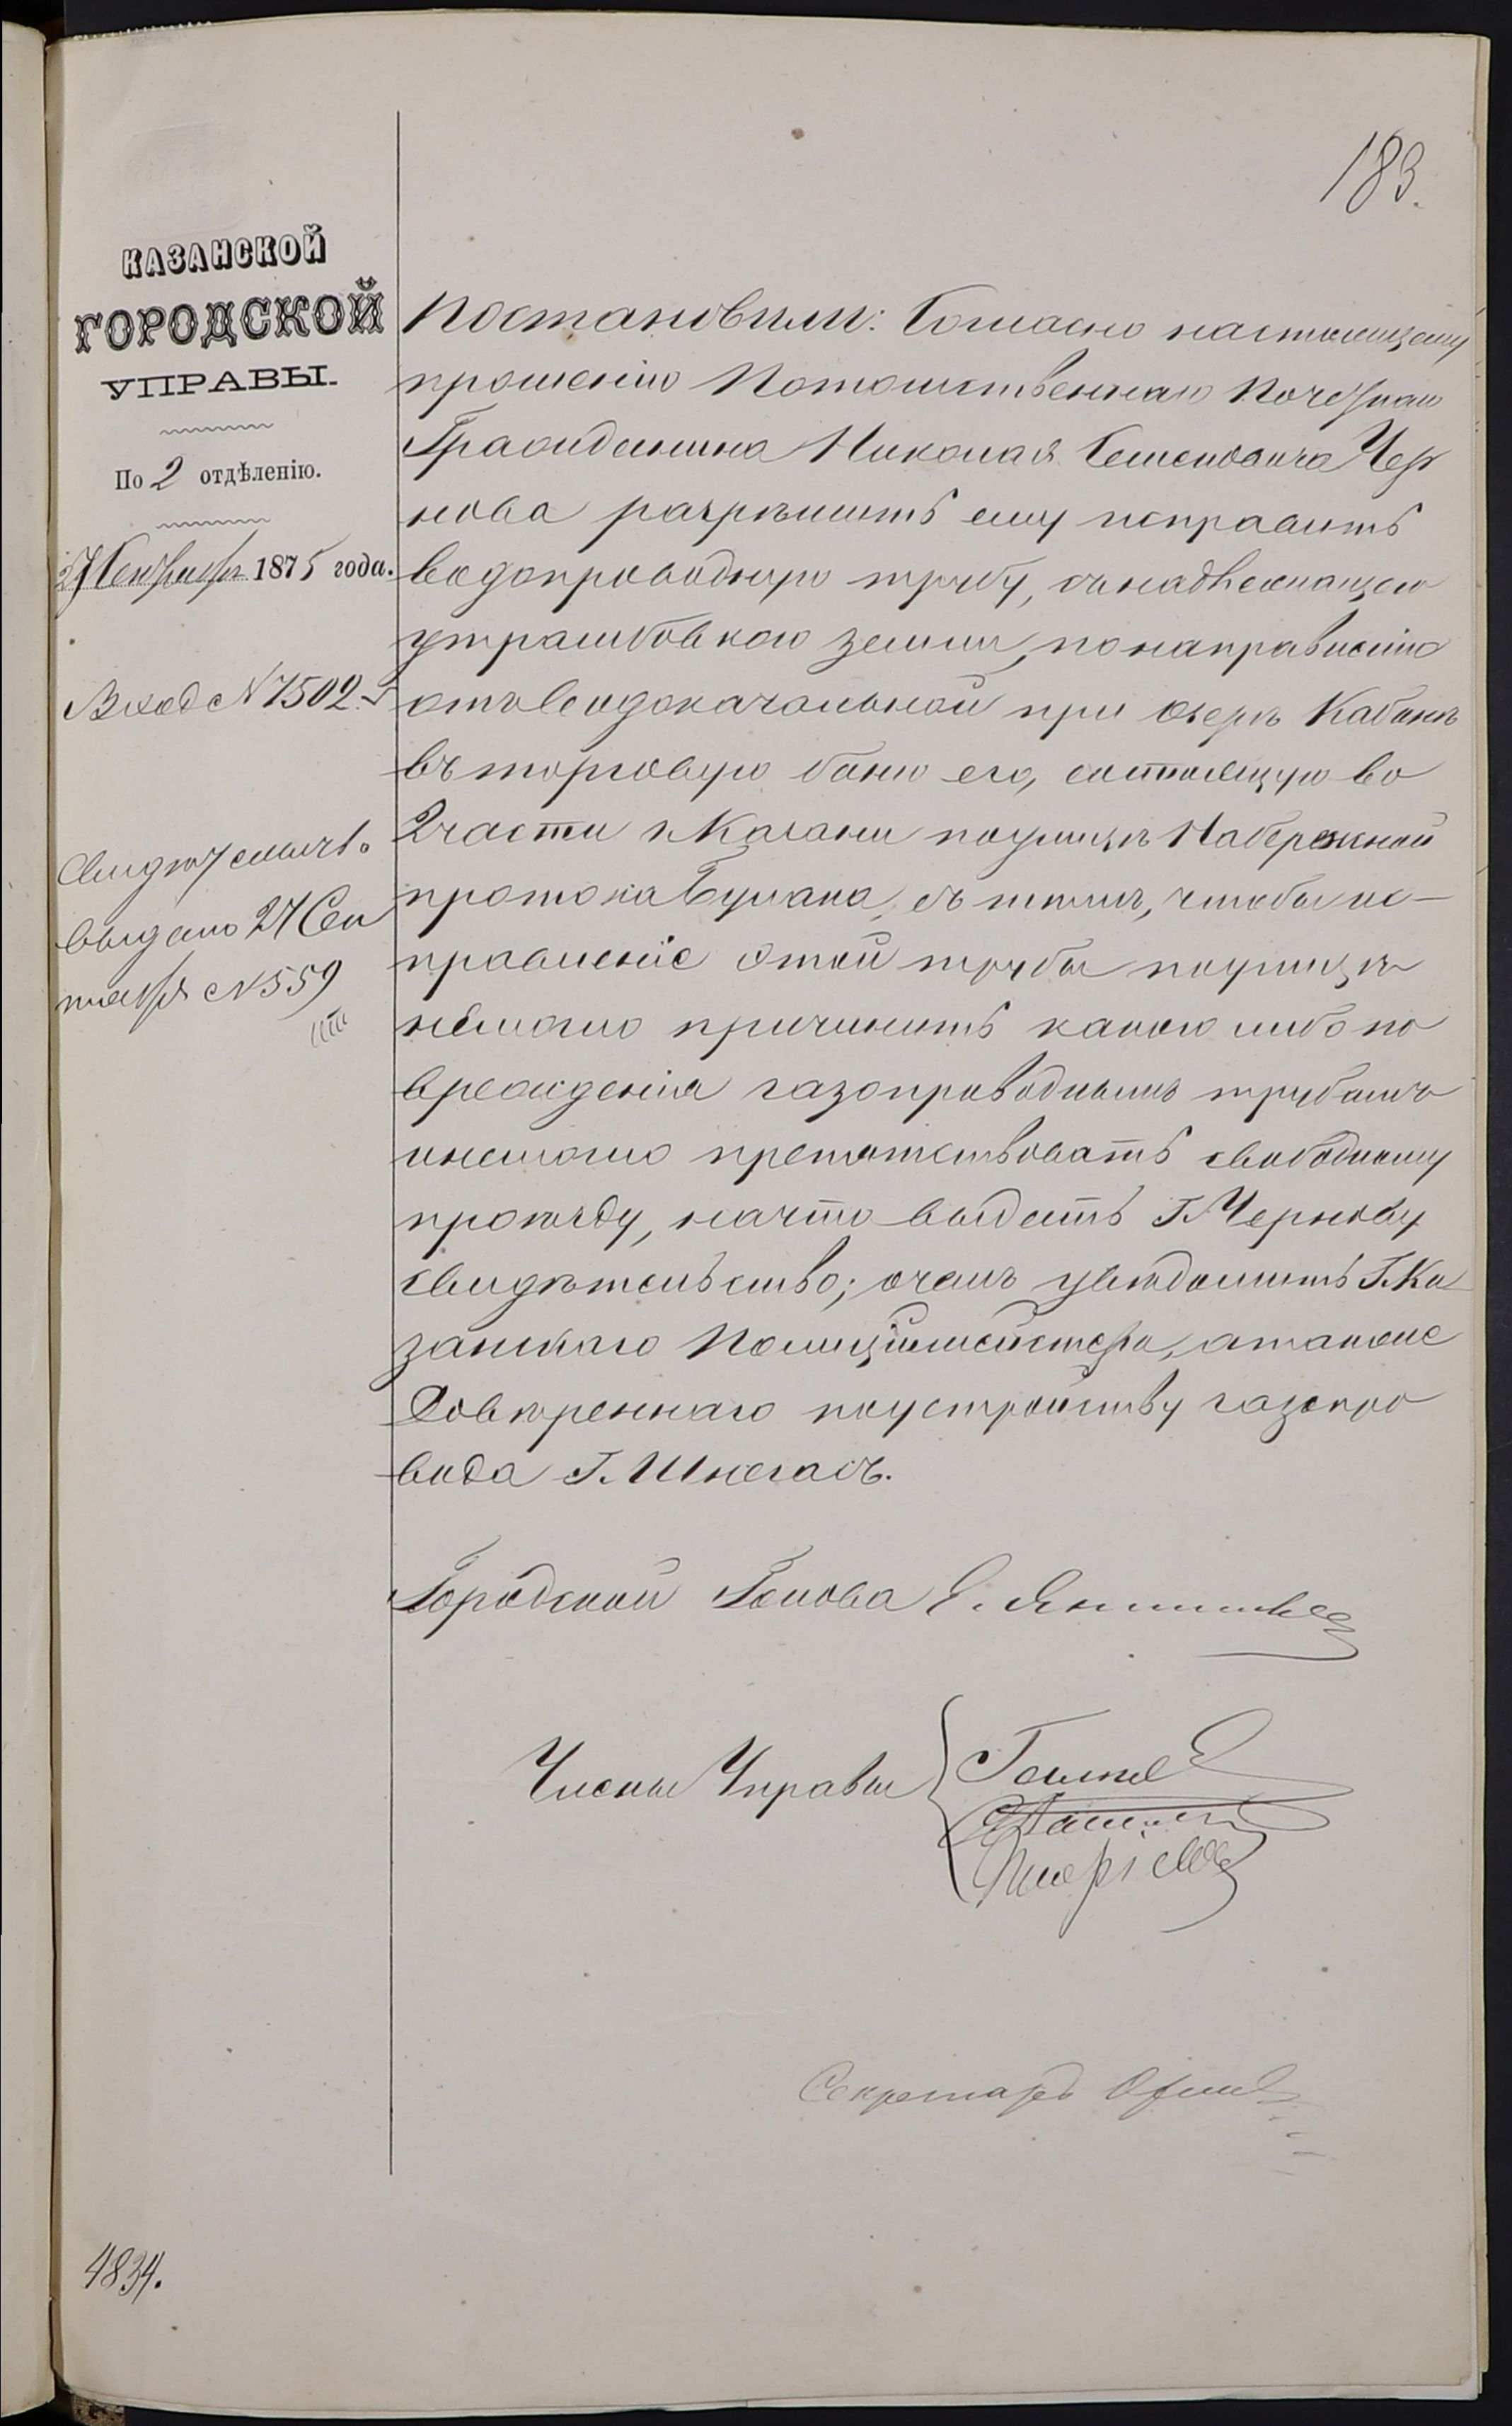 183.
КАЗАНСКОЙ
ГОРОДСКОЙ
УПРАВЫ.
По 2 отдѣленію.
27 Сентября 1875 года.
Вход № 7502.
Свидѣтельств.
выдано 27 Сен
тября № 559
Постановили: Согласно настоящему
прошенію Потомственнаго Почетнаго
Гражданина Николая Семеновича Чер
нова разрѣшить ему исправить
водопроводную трубу, съ надлежащею
утрамбовкою земли, по направленію
отъ водокачальной при озерѣ Кабанѣ
въ торговую баню его, состоящую во
2 части г. Казани по улицѣ Набережной
протока Булака, съ тѣмъ, чтобы ис-
правленіе этой трубы по улицѣ
немогло причинить какого либо по
врежденія газопроводнымъ трубамъ
и немогло препятствовать свободному
проѣзду, на что выдать Г. Чернову
свидѣтельство; о чемъ увѣдомить Г. Ка
занскаго Полиціймейстера, а также
Довѣреннаго по устройству газопро
вода Г. Шнегасъ.
Городской Голова Е. Янишев
Члены Управы
Секретарь
4834.